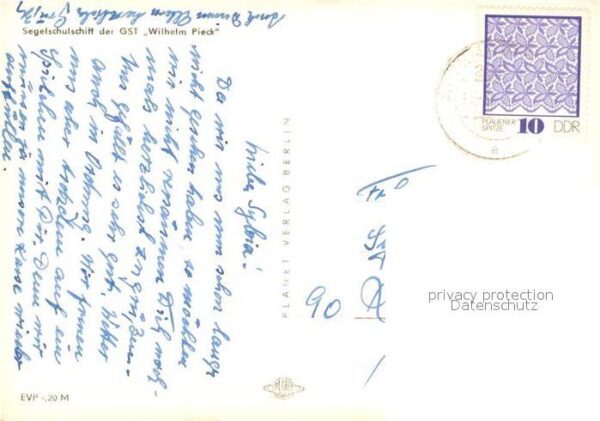 Segelschulschiff der GST „Wilhelm Pieck"
Liebe Sylvia!
Da wir uns nun schon lange
nicht gesehen haben, so möchten
wir nicht versäumen Dich noch-
mals herzlichst zu grüßen.
Uns gefällt es sehr gut. Wetter
auch in Ordnung. Wir freuen
uns aber trotzdem auf ein
mit Dir. Denn wir
müssen für unsere Kasse wieder
auffüllen.
Auch Deinen Eltern herzliche Grüße
PLANET VERLAG BERLIN
EVP -,20 M
PLAUENER
SPITZE
10 DDR
90
privacy protection
Datenschutz